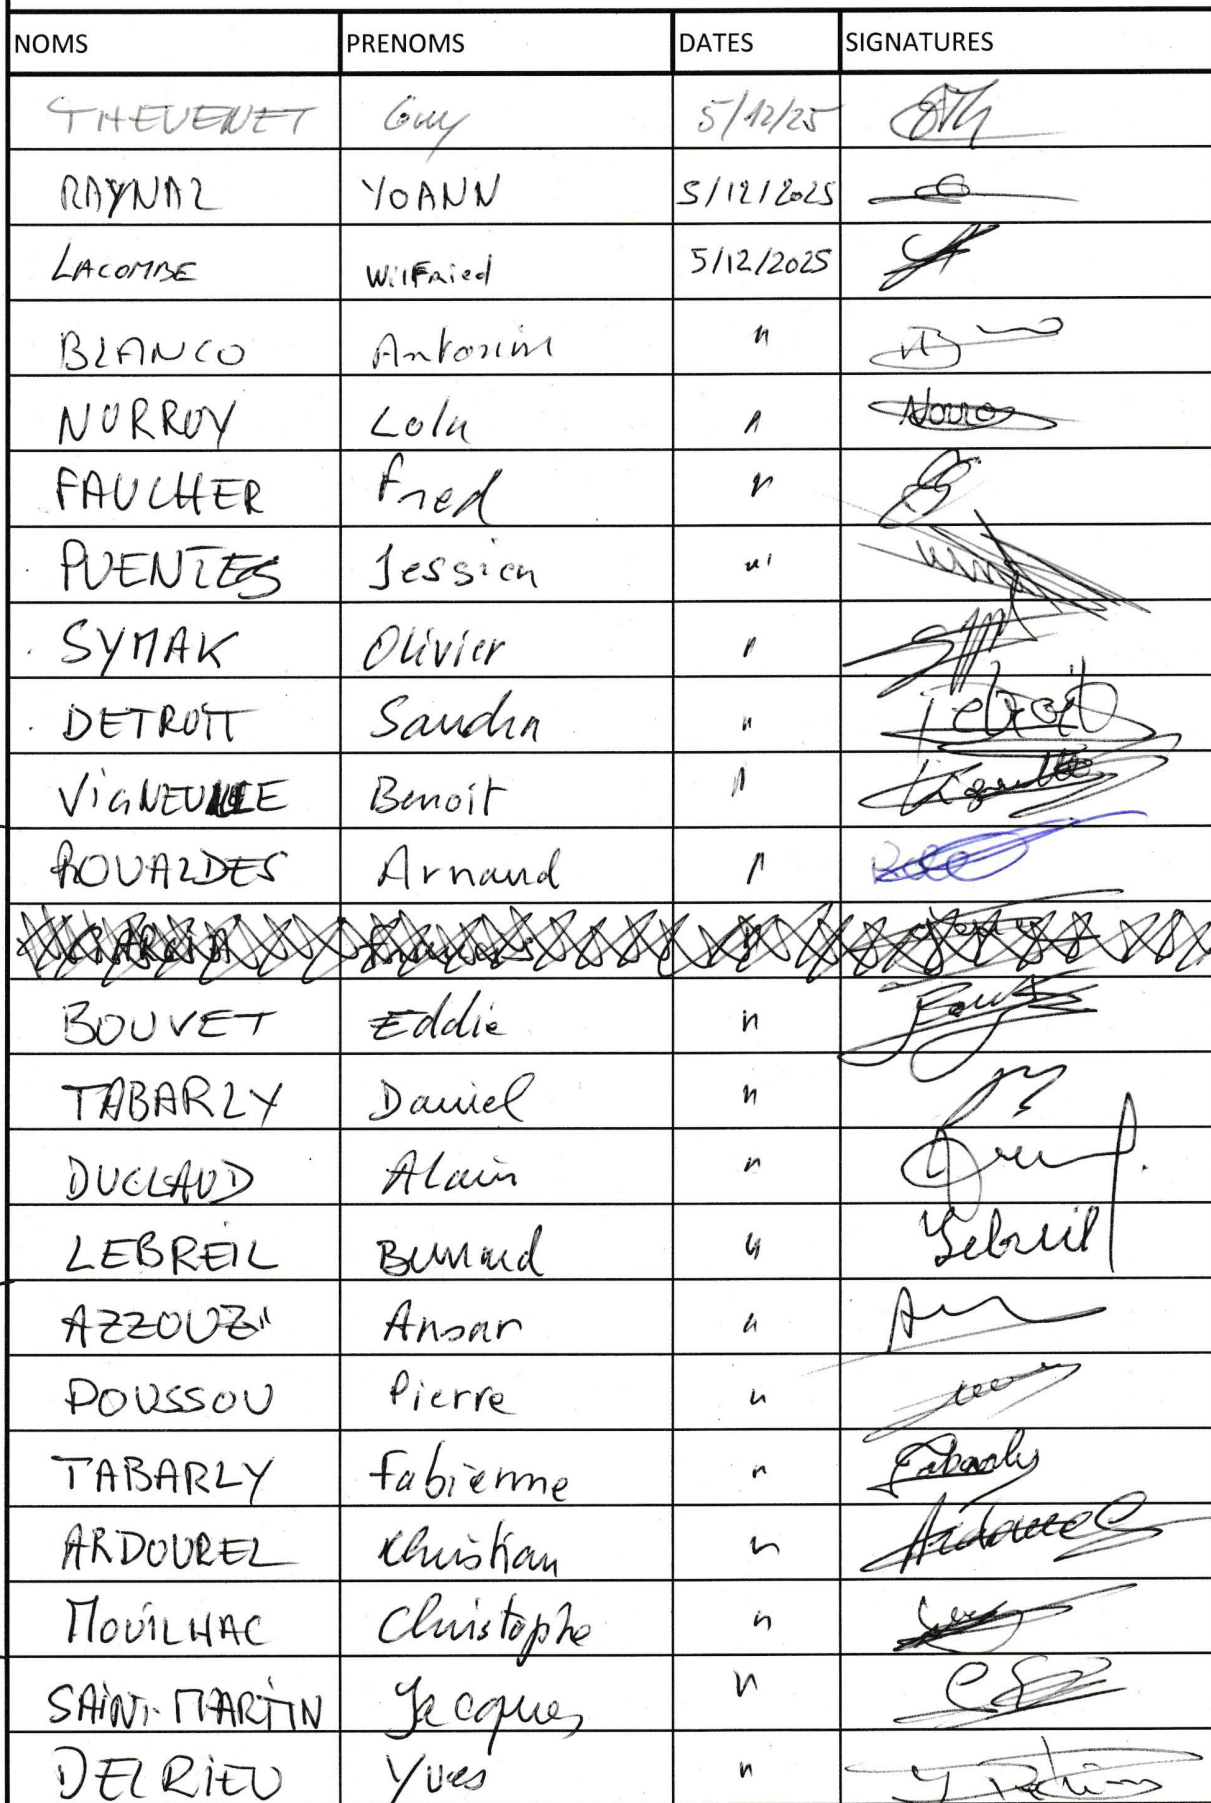 NOMS PRENOMS DATES SIGNATURES
THEVENET Guy 5/12/25
RAYNAL YOANN 5/12/2025
LACOMBE WilFried 5/12/2025
BLANCO Antonin "
NORROY Lola "
FAUCHER Fred "
PUENTES Jessica "
SYMAK Olivier "
DETROIT Sandra " Detroit
VIGNEULLE Benoit "
ROUALDES Arnaud "
GARCIA
BOUVET Eddie "
TABARLY Daniel "
DUCLAUD Alain "
LEBREIL Bernard " Lebreil
AZZOUZI Ansar "
POUSSOU Pierre "
TABARLY Fabienne " Tabarly
ARDOUREL Christian " Ardourel
MOUILHAC Christophe "
SAINT-MARTIN Jacques "
DELRIEU Yves "